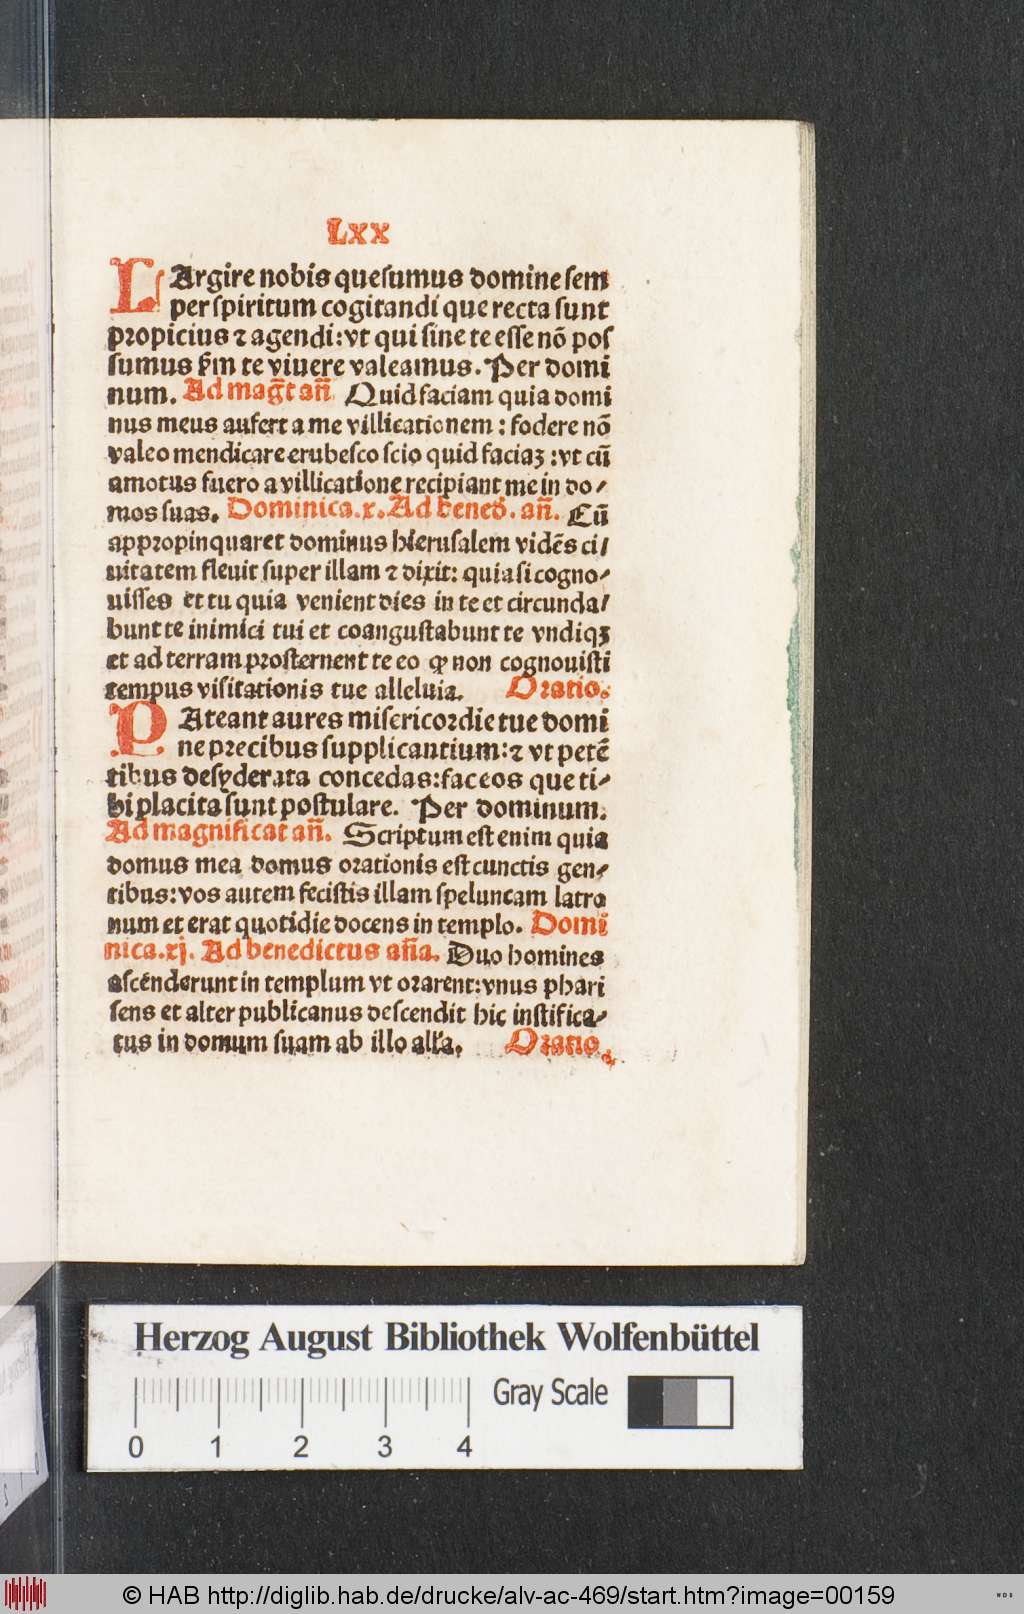 Lxx
LArgire nobis quesumus domine sem
per spiritum cogitandi que recta sunt
propicius ⁊ agendi: vt qui sine te esse nō pos
sumus ẜm te viuere valeamus. Per domi
num. Ad mag̅t an̄ Quid faciam quia domi
nus meus aufert a me villicationem: fodere nō
valeo mendicare erubesco scio quid faciaꝫ: vt cū
amotus fuero a villicatione recipiant me in do/
mos suas. Dominica.x. Ad bened̄. an̄. Cū
appropinquaret dominus hierusalem vidēs ci/
uitatem fleuit super illam ⁊ dixit: quia si cogno/
uisses et tu quia venient dies in te et circunda/
bunt te inimici tui et coangustabunt te vndiqꝫ
et ad terram prosternent te eo ꝙ non cognouisti
tempus visitationis tue alleluia. Oratio.
PAteant aures misericordie tue domi
ne precibus supplicantium: ⁊ vt petē
tibus desyderata concedas: fac eos que ti/
bi placita sunt postulare. Per dominum.
Ad magnificat an̄. Scriptum est enim quia
domus mea domus orationis est cunctis gen/
tibus: vos autem fecistis illam speluncam latro
num et erat quotidie docens in templo. Domi
nica.xj. Ad benedictus an̄a. Duo homines
ascenderunt in templum vt orarent: vnus phari
sens et alter publicanus descendit hic iustifica/
tus in domum suam ab illo all'a. Oratio.
Herzog August Bibliothek Wolfenbüttel
Gray Scale
0 1 2 3 4
© HAB http://diglib.hab.de/drucke/alv-ac-469/start.htm?image=00159